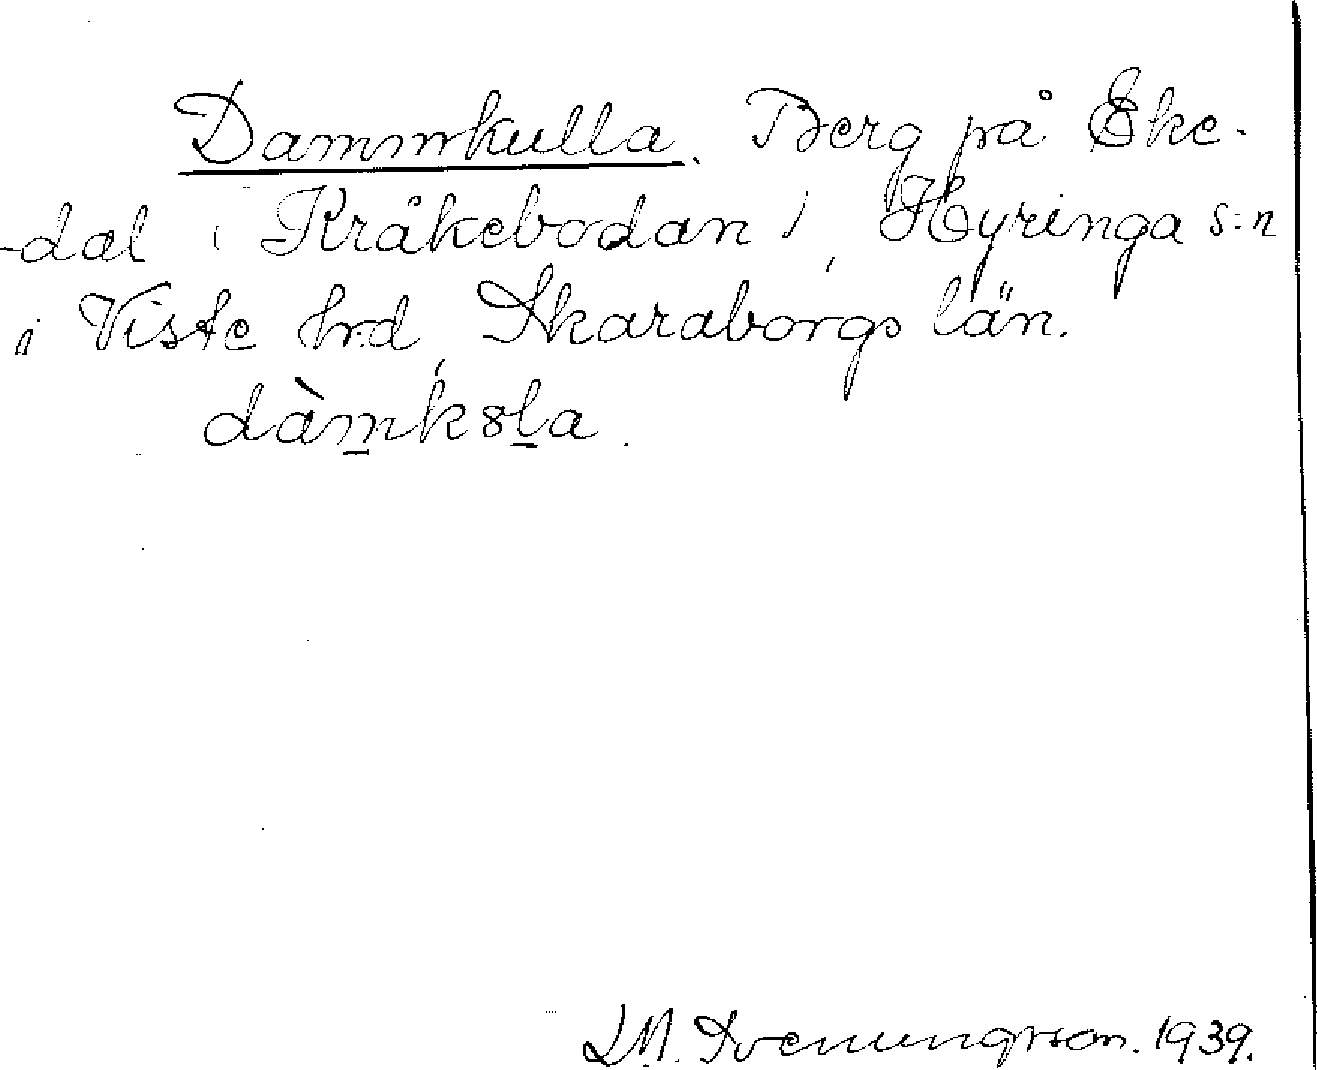 Dammkulla. Berg på Eke-
-dal (Kråkebodan), Hyringa s:n
i Viste hrd, Skaraborgs län.
dàm̲k8l̲a.
L.M. Svenungsson. 1939.